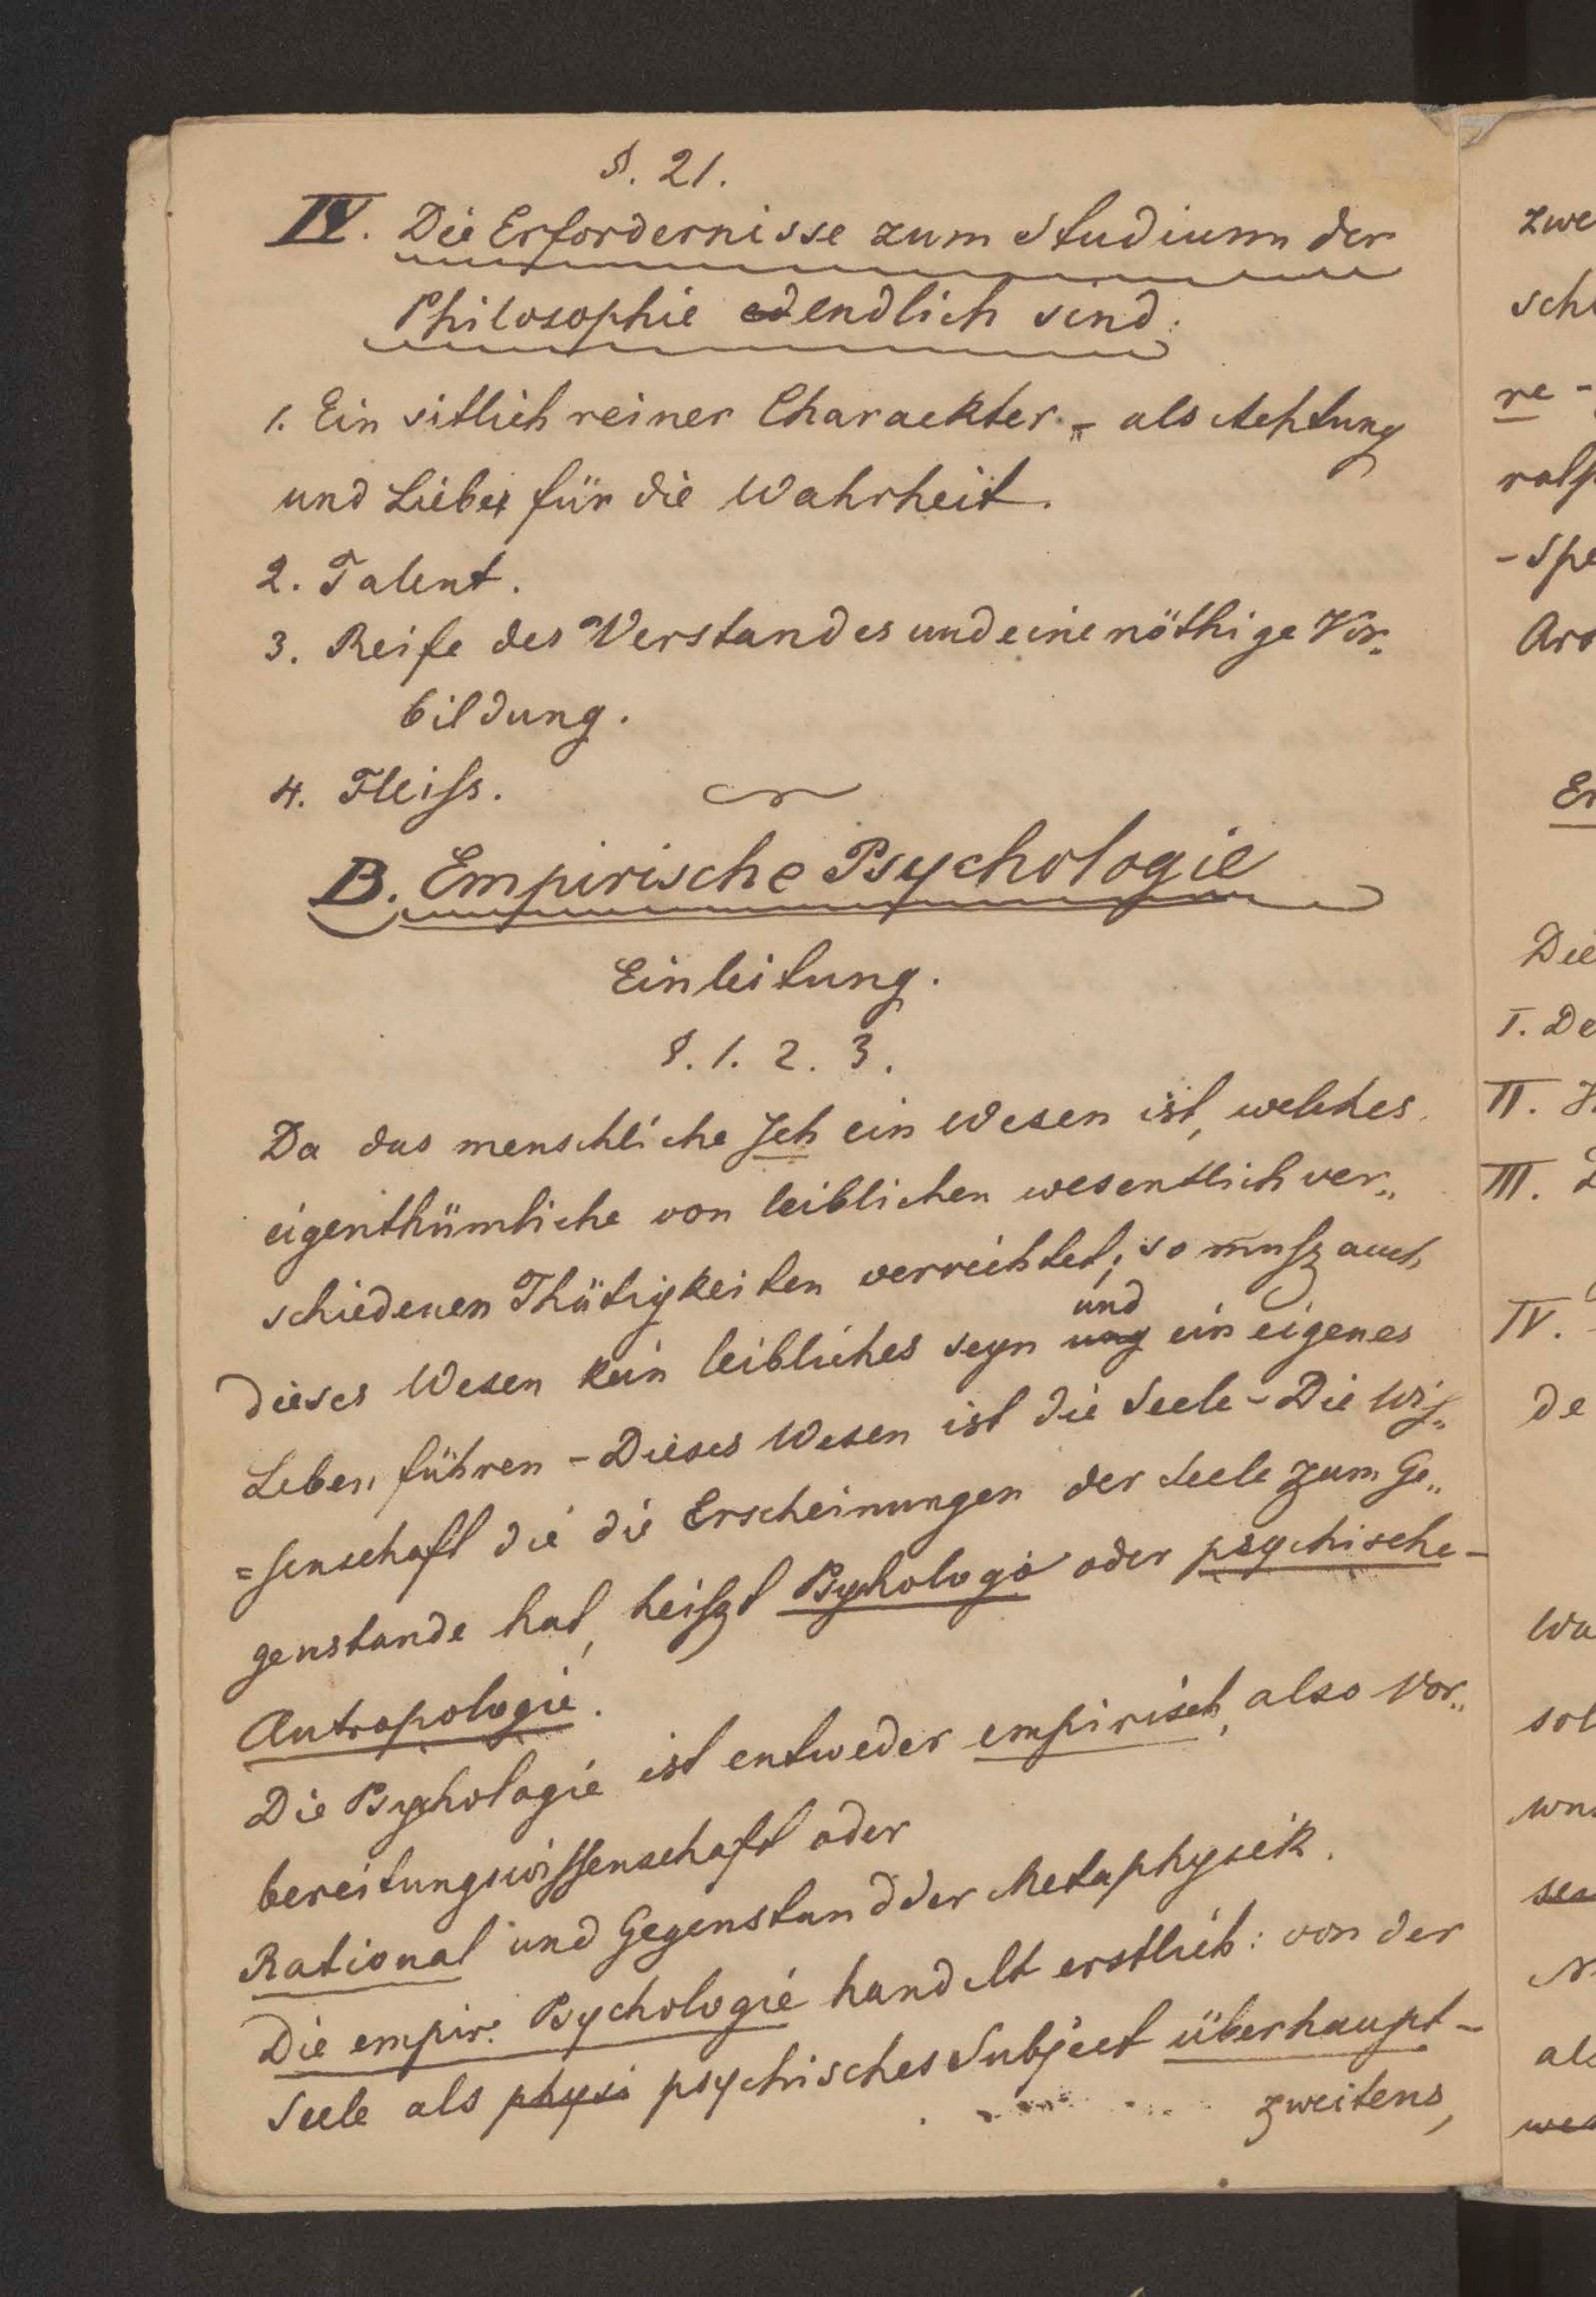 §. 21.
IV. Die Erfordernisse zum Studium der
Philosophie endlich sind:
1. Ein sitlich reiner Charackter - als Achtung
und Liebe für die Wahrheit.
2. Talent.
3. Reife des Verstandes und eine nöthige Vor„
bildung.
4. Fleiſs.
B. Empirische Psychologie
Einleitung.
§. 1. 2. 3.
Da das menschliche Ich ein Wesen ist, welches
eigenthümliche von leiblichen wesentlich ver„
schiedenen Thätigkeiten verrichtet; so muſz auch
und
dieses Wesen kein leibliches seyn ung ein eigenes
Leben führen - Dieses Wesen ist die Seele - Die Wiſ„
=ſenschaft die die Erscheinungen der Seele zum Ge„
genstande hat, heiſzt Psychologie oder psychische -
Antropologie.
Die Psychologie ist entweder empirisch, also Vor„
bereitungswiſſenschaft oder
Rational und Gegenstand der Metaphysik.
Die empir. Psychologie handelt erstlich: von der
Seele als physi psychisches Subject überhaupt -
zweitens,
zwe
sch
re -
-Spe
Die
I. De
II.
III.
IV.
de
Wa
sol
als